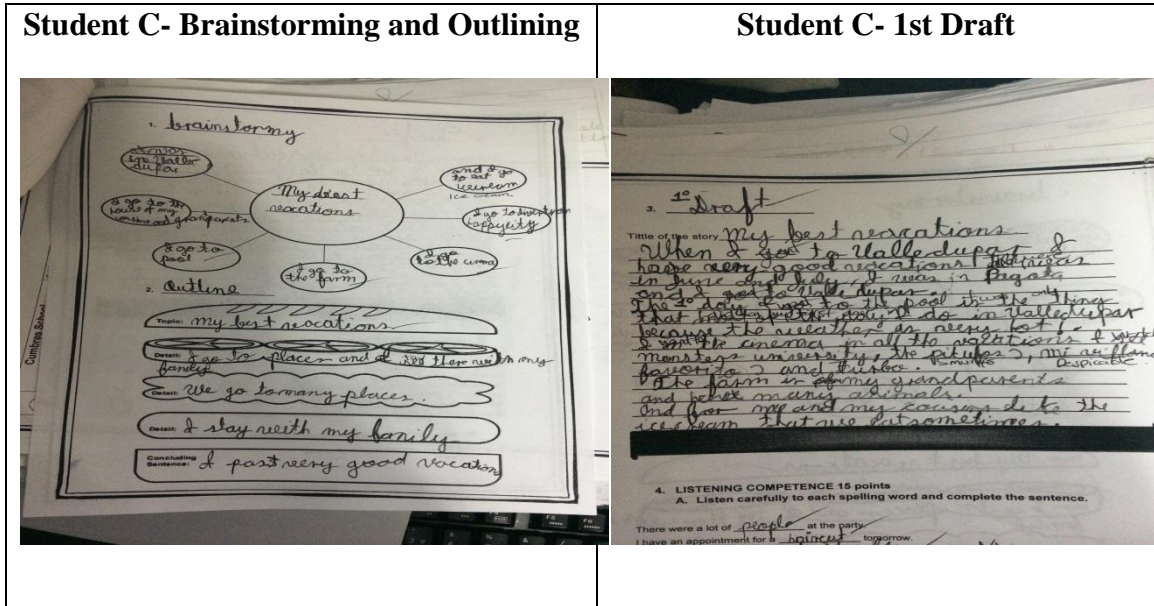 Student C- Brainstorming and Outlining
Student C- 1st Draft
1. brainstormy
in Valle
dupar
My
vacations
and I go
to eat
icecream
ice cream
I go to the
house of my
and grandparents
I go to
happycity
I go to
pool
I go
to the
I go to
the farm
2. Outline
Topic: my best vacations
Detail: I go to places and there with my
family
Detail: We go to many places.
Detail: I stay with my family
Concluding
Sentence: I past very good vacation
Cumbres School
F5
F6
3. 1° Draft
Tittle of the story My best vacations
When I go to Valledupar I
have very good vacations
in June and July, I was in Bogota
and I to Valledupar.
The 1° day I to the pool is the only thing
that I do in Valledupar
because the weather is very hot.
I the cinema in all the vacations I
monsters university, the pitufos, mi villano
Smurfs Despicable
favorito 2 and turbo.
The farm is of my grandparents
and many animals.
And for me and my cousins the
icecream that we eat sometimes.
4. LISTENING COMPETENCE 15 points
A. Listen carefully to each spelling word and complete the sentence.
There were a lot of people at the party
I have an appointment for a haircut tomorrow.